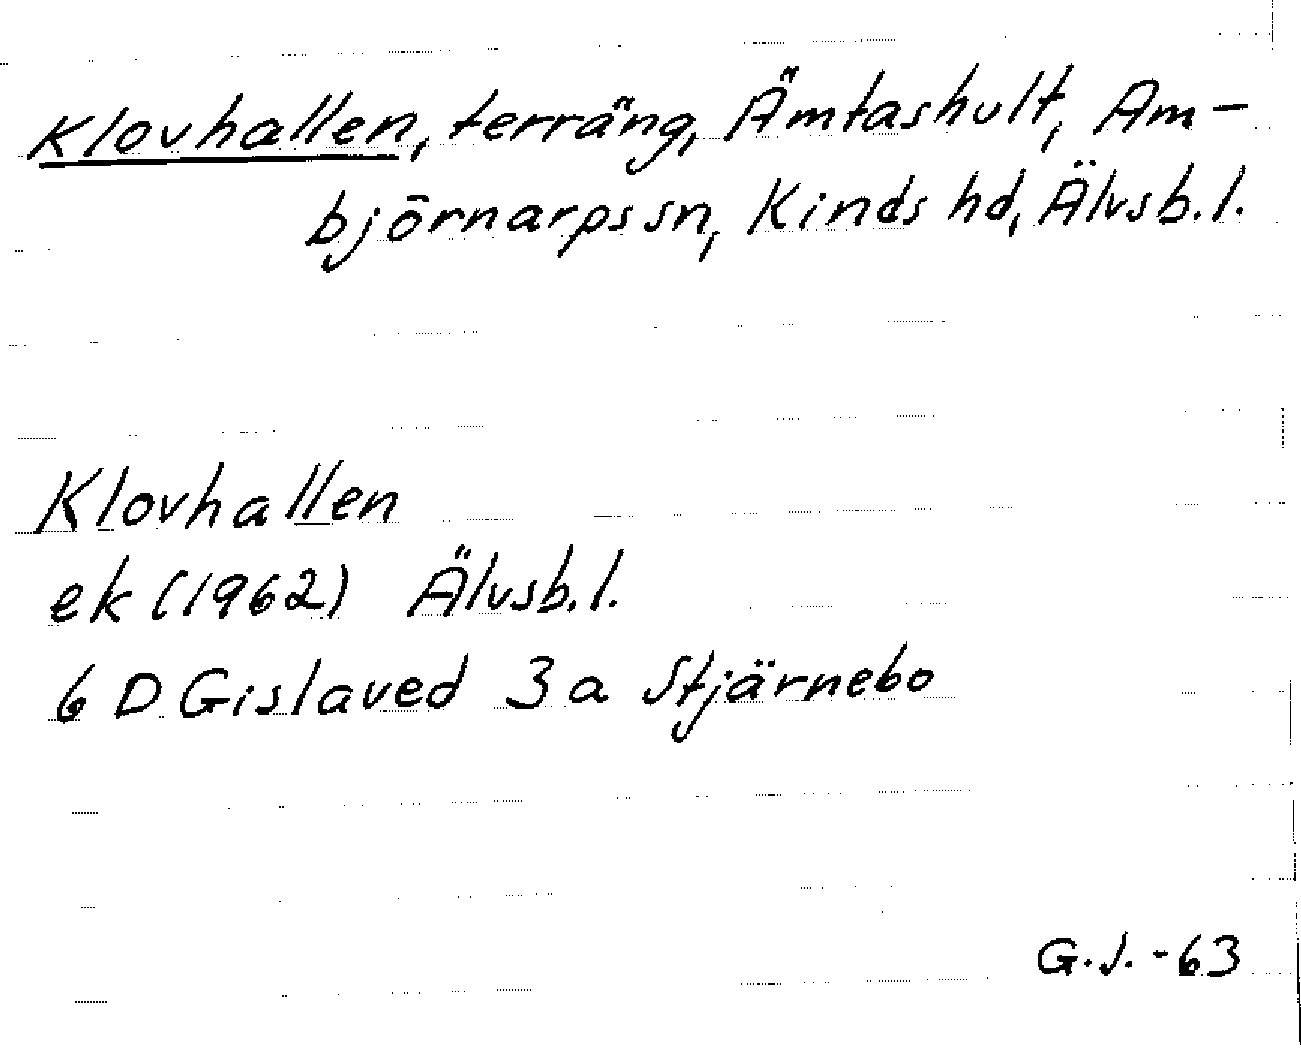 Klovhallen, terräng, Ämtashult, Am-
björnarps sn, Kinds hd, Älvsb. l.
Klovhallen
ek (1962) Älvsb. l.
6 D Gislaved 3 a Stjärnebo
G. J. -63